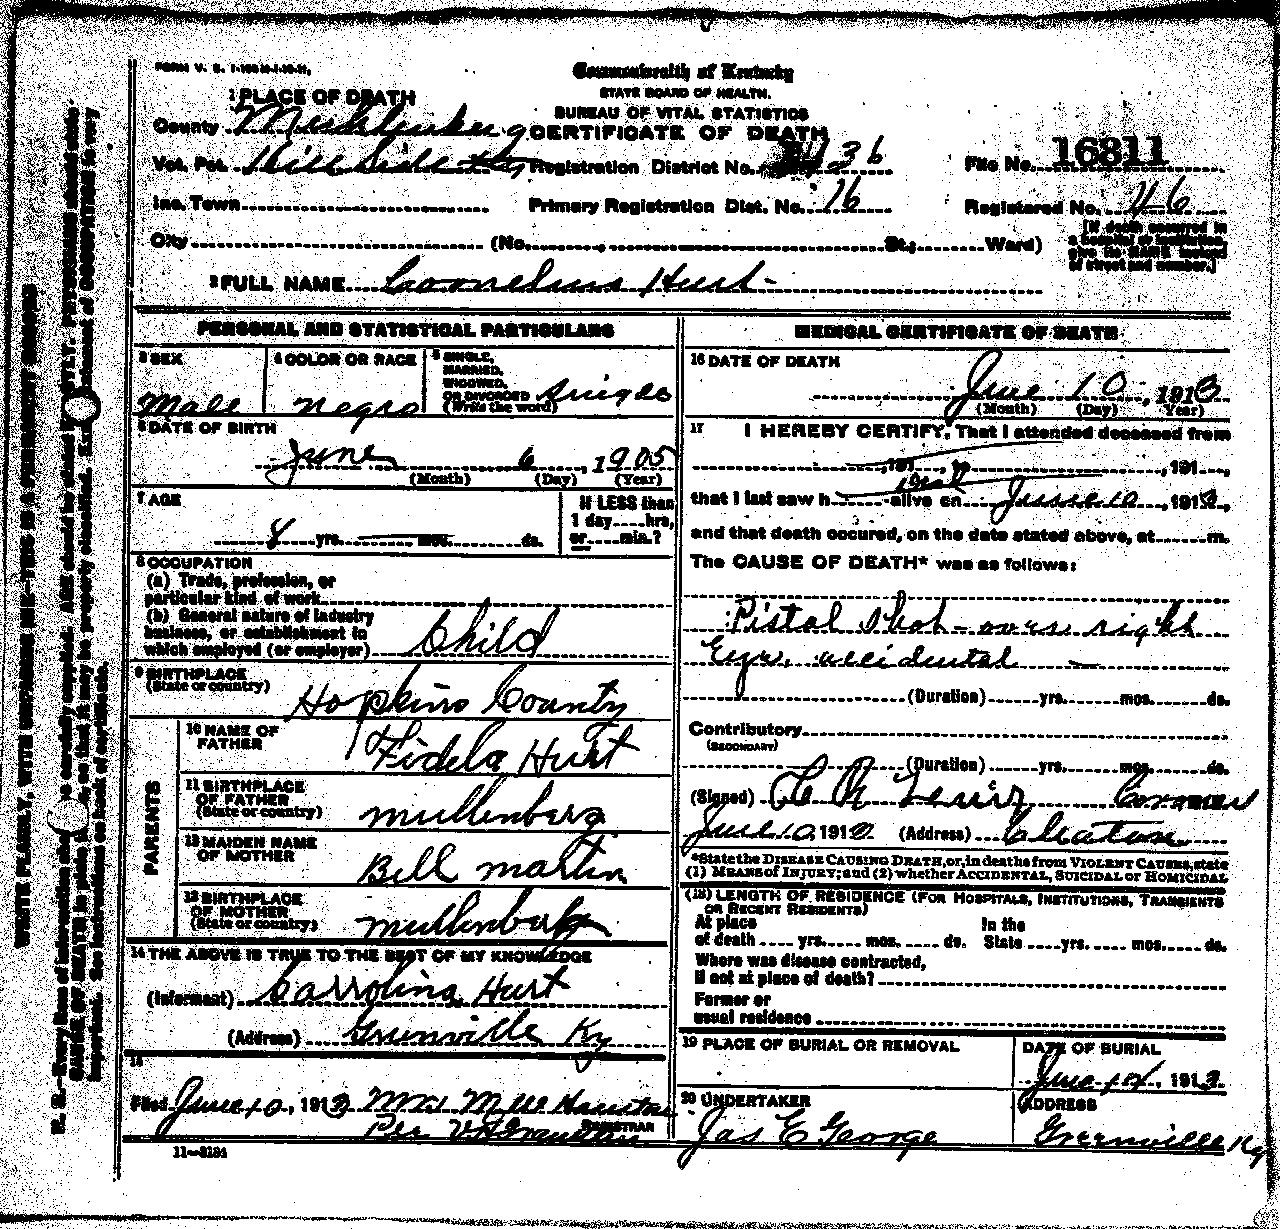 FORM V. S.
Commonwealth of Kentucky
STATE BOARD OF HEALTH.
BUREAU OF VITAL STATISTICS
CERTIFICATE OF DEATH
1 PLACE OF DEATH
County Muhlenberg
Vot. Pct. Hill Side Registration District No. 36 File No. 16811
Inc. Town Primary Registration Dist. No. 16 Registered No. 46
City (No. , St.; Ward)
[If death occurred in
a hospital or institution,
give its NAME instead
of street and number.]
2 FULL NAME Coornelius Hurt
PERSONAL AND STATISTICAL PARTICULARS
3 SEX
Male
4 COLOR OR RACE
negro
5 SINGLE,
MARRIED,
WIDOWED,
OR DIVORCED
(Write the word)
Single
6 DATE OF BIRTH
June 6, 1905
(Month) (Day) (Year)
7 AGE
8 yrs. mos. ds.
If LESS than
1 day hrs,
or min.?
8 OCCUPATION
(a) Trade, profession, or
particular kind of work
(b) General nature of industry
business, or establishment in
which employed (or employer) Child
9 BIRTHPLACE
(State or country) Hopkins County
PARENTS
10 NAME OF
FATHER Fidela Hurt
11 BIRTHPLACE
OF FATHER
(State or country) mullenberg
12 MAIDEN NAME
OF MOTHER Bell martin
13 BIRTHPLACE
OF MOTHER
(State or country) mullenberg
14 THE ABOVE IS TRUE TO THE BEST OF MY KNOWLEDGE
(Informant) Carrolina Hurt
(Address) Greenville Ky
15
Filed June 10, 1913
REGISTRAR
11-3184
MEDICAL CERTIFICATE OF DEATH
16 DATE OF DEATH
June 10, 1913
(Month) (Day) Year)
17 I HEREBY CERTIFY, That I attended deceased from
, 191 , to , 191 ,
that I last saw h alive on June 10, 1913,
and that death occured, on the date stated above, at m.
The CAUSE OF DEATH* was as follows:
Pistol shot - over right
Eye. accidental
(Duration) yrs. mos. ds.
Contributory
(SECONDARY)
(Duration) yrs. mos. ds.
(Signed) Lewis Coroner
June 10, 191 (Address) Cleaton
*State the DISEASE CAUSING DEATH, or, in deaths from VIOLENT CAUSES, state
(1) MEANS of INJURY; and (2) whether ACCIDENTAL, SUICIDAL or HOMICIDAL
(18) LENGTH OF RESIDENCE (FOR HOSPITALS, INSTITUTIONS, TRANSIENTS
OR RECENT RESIDENTS)
At place In the
of death yrs. mos. ds. State yrs. mos. ds.
Where was disease contracted,
if not at place of death?
Former or
usual residence
19 PLACE OF BURIAL OR REMOVAL
DATE OF BURIAL
June , 1913
20 UNDERTAKER
Jas E George
ADDRESS
Greenville Ky